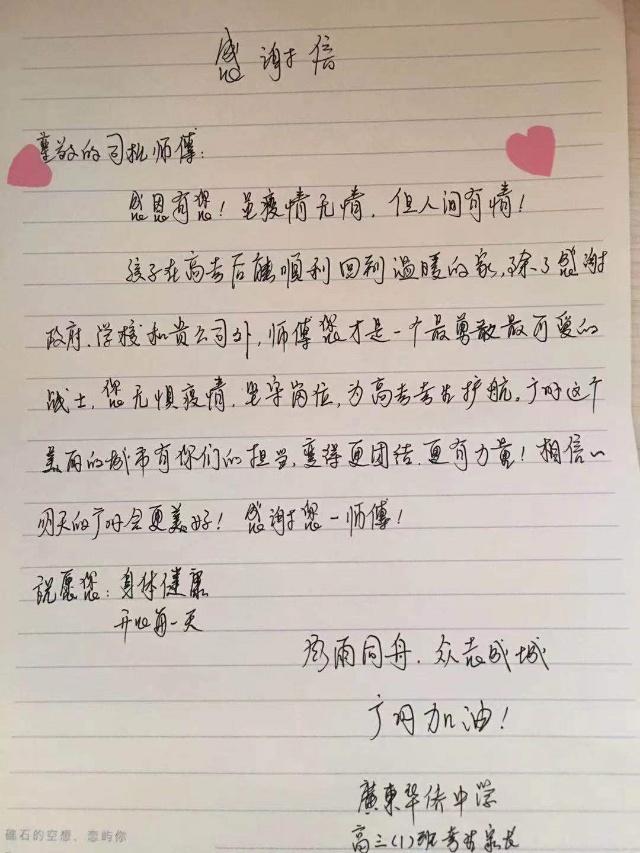 感谢信
尊敬的司机师傅：
感恩有您！虽疫情无情，但人间有情！
孩子在高考后能顺利回到温暖的家，除了感谢
政府、学校和贵公司外，师傅您才是一个最勇敢最可爱的
战士，您无惧疫情，坚守岗位，为高考考生护航。广州这个
美丽的城市有你们的担当，变得更团结，更有力量！相信
明天的广州会更美好！感谢您-师傅！
祝愿您：身体健康
开心每一天
风雨同舟，众志成城
广州加油！
廣東华侨中学
高三(1)班考生家长
礁石的空想、恋屿你